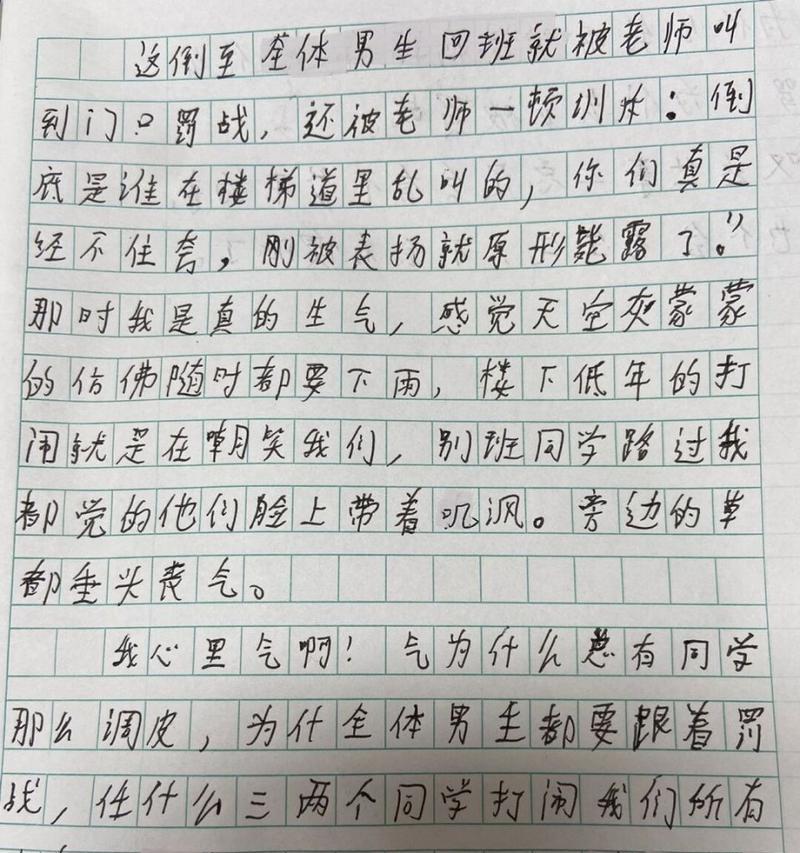 这倒至全体男生回班就被老师叫
到门口罚战，还被老师一顿训炊：倒
底是谁在楼梯道里乱叫的，你们真是
经不住夸，刚被表扬就原形毙露了。”
那时我是真的生气，感觉天空灰蒙蒙
的仿佛随时都要下雨，楼下低年的打
闹就是在嘲笑我们，别班同学路过我
都觉的他们脸上带着讥讽。旁边的草
都垂头丧气。
我心里气啊！气为什么总有同学
那么调皮，为什全体男生都要跟着罚
战，任什么三两个同学打闹我们所有